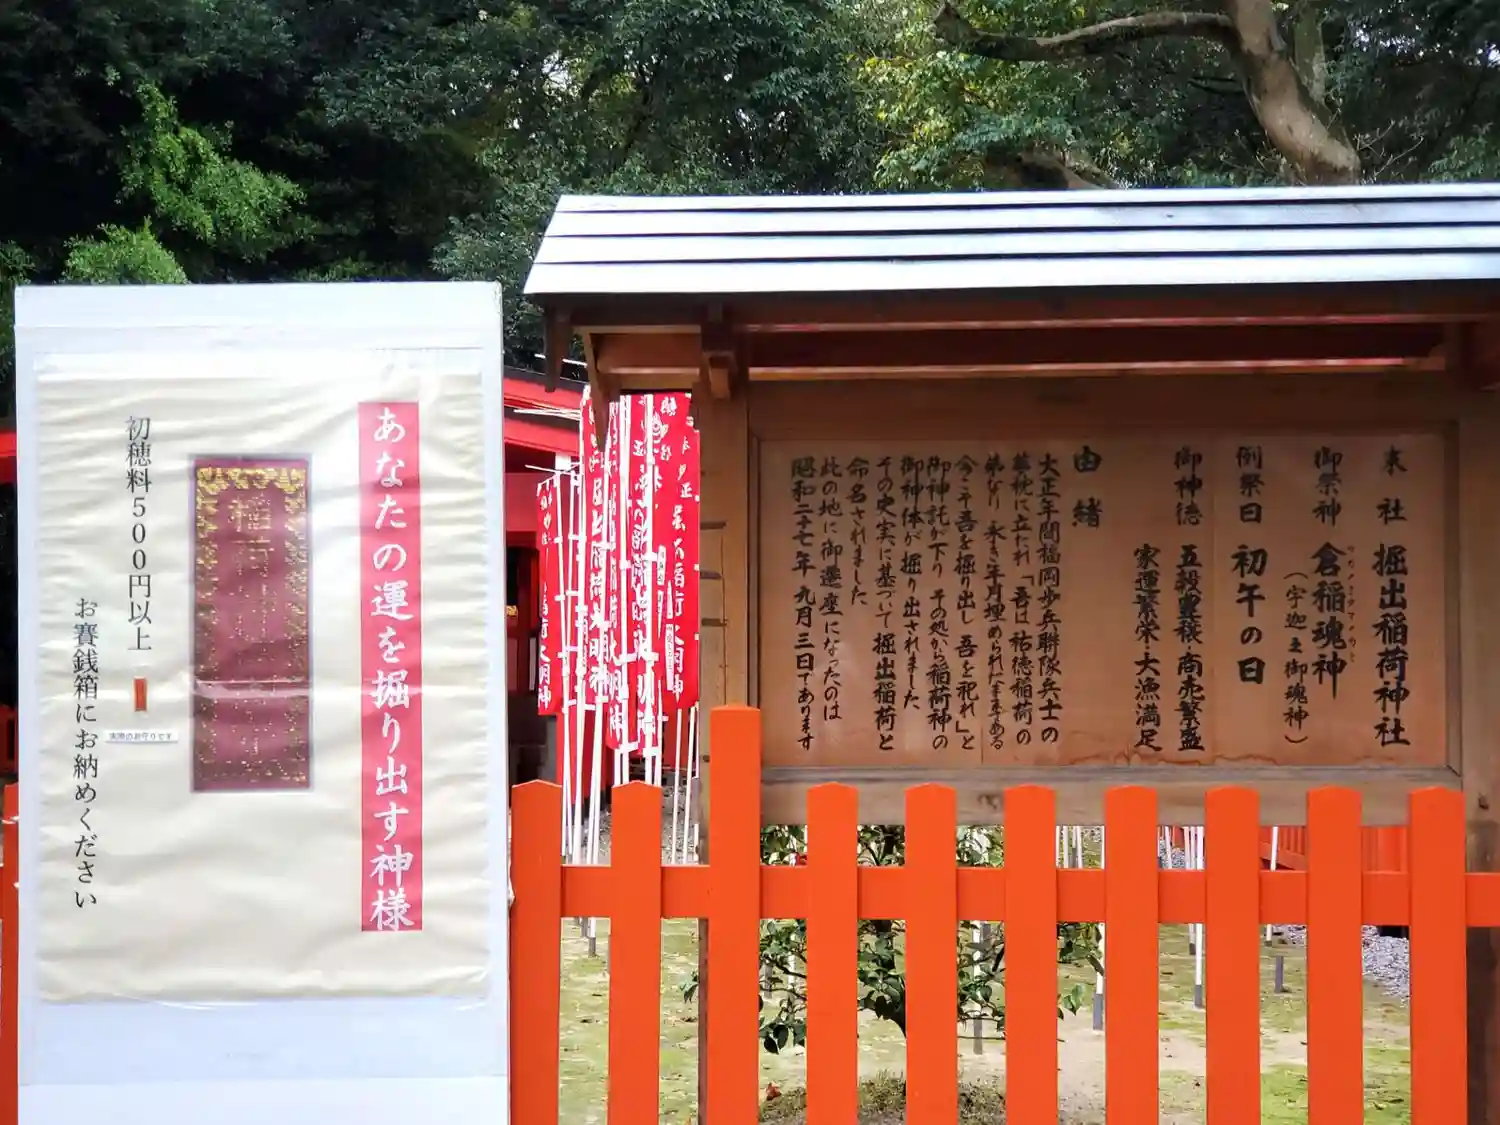 あなたの運を掘り出す神様
初穂料500円以上
実際のお守りです
お賽銭箱にお納めください
末社 掘出稲荷神社
御祭神 倉稲魂神
(宇迦之御魂神)
例祭日 初午の日
御神徳 五穀豊穣・商売繁盛
家運繁栄・大漁満足
由緒
大正年間福岡歩兵聯隊兵士の
夢枕に立たれ「吾は祐徳稲荷の
弟なり 永き年月埋められたままある
今こそ吾を掘り出し 吾を祀れ」と
御神託が下り その処から稲荷神の
御神体が掘り出されました
その史実に基づいて 掘出稲荷と
命名されました
此の地に御遷座になったのは
昭和二十七年九月三日であります